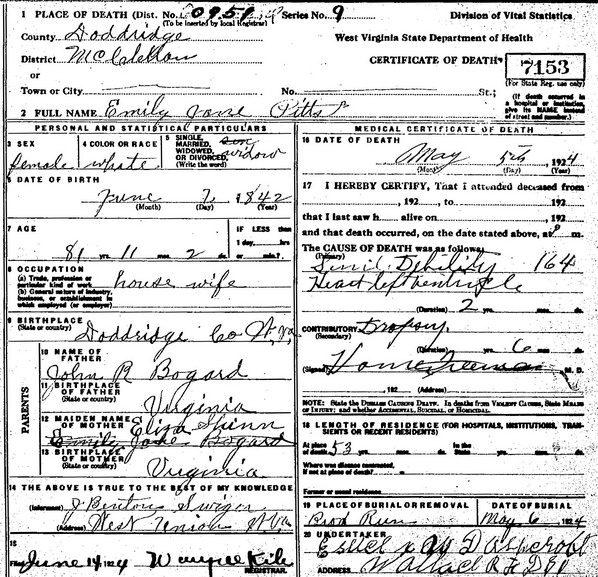 1 PLACE OF DEATH (Dist. No. 0951 Series No. 9 Division of Vital Statistics
(To be inserted by local Registrar)
County Doddridge West Virginia State Department of Health
District McClellan CERTIFICATE OF DEATH
or 7153
(For State Reg. use only)
Town or City No. St.;
(If death occurred in a hospital or institution, give its NAME instead of street and number.)
2 FULL NAME Emily Jane Pitts
PERSONAL AND STATISTICAL PARTICULARS
3 SEX female
4 COLOR OR RACE white
5 SINGLE, MARRIED, WIDOWED OR DIVORCED (Write the word) widow
6 DATE OF BIRTH
June 7, 1842
(Month) (Day) (Year)
7 AGE IF LESS than
81 yrs. 11 mos. 2 ds. 1 day, hrs.
or min.
8 OCCUPATION
(a) Trade, profession or particular kind of work house wife
(b) General nature of industry, business, or establishment in which employed (or employer)
9 BIRTHPLACE
(State or country) Doddridge Co W, Va
PARENTS
10 NAME OF FATHER
John R Bogard
11 BIRTHPLACE OF FATHER
(State or country) Virginia
12 MAIDEN NAME OF MOTHER Eliza Shinn
Emily Jane Bogard
13 BIRTHPLACE OF MOTHER
(State or country) Virginia
14 THE ABOVE IS TRUE TO THE BEST OF MY KNOWLEDGE
(Informant) J Benton Swiger
(Address) West Union W Va
15
Filed June 14 1924 Wayne Kile
REGISTRAR.
MEDICAL CERTIFICATE OF DEATH
16 DATE OF DEATH
May 5th, 1924
(Month) (Day) (Year)
17 I HEREBY CERTIFY, That I attended deceased from
, 192 , to , 192
that I last saw h alive on , 192
and that death occurred, on the date stated above, at m.
The CAUSE OF DEATH was as follows:
(Primary)
Senil Debility 164
Heart left ventricle
(Duration) 2 yrs. mos. ds.
CONTRIBUTORY Dropsy
(Secondary)
(Duration) 6 mos. ds.
(Signed) M. D.
, 192 (Address)
NOTE: State the DISEASE CAUSING DEATH. In deaths from VIOLENT CAUSES, State MEANS OF INJURY; and whether ACCIDENTAL, SUICIDAL OR HOMICIDAL.
18 LENGTH OF RESIDENCE (FOR HOSPITALS, INSTITUTIONS, TRANSIENTS OR RECENT RESIDENTS)
At place of death 53 yrs. mos. ds. In the State yrs. mos. ds.
Where was disease contracted,
if not at place of death?
Former or usual residence
19 PLACE OF BURIAL OR REMOVAL DATE OF BURIAL
Run May 6 1924
20 UNDERTAKER
Wallace R F D